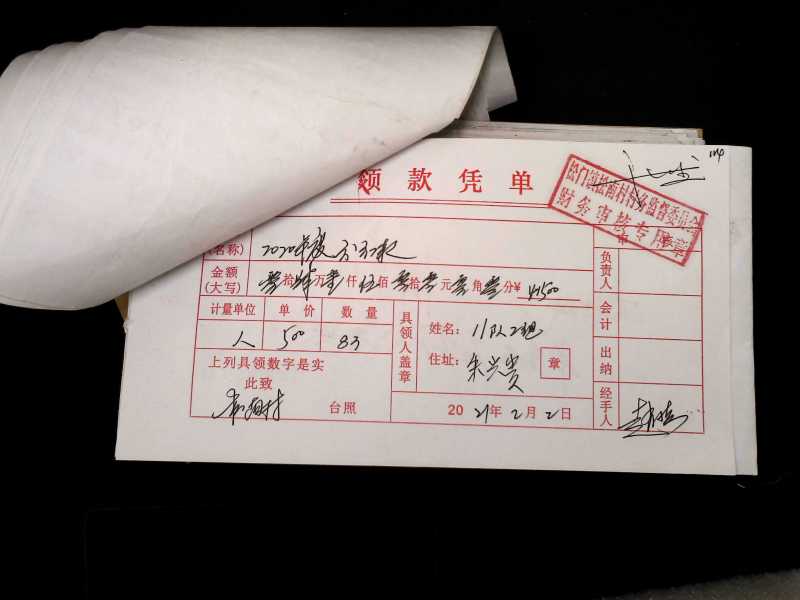 104
领款凭单
松门镇松南村村务监督委员会
财务审核专用章
(名称) 2020年度分红款
金额(大写) 零拾肆万壹仟伍佰零拾零元零角零分¥ 41500
计量单位 单价 数量
人 500 83
上列具领数字是实
此致
台照
具领人盖章
姓名: 11队2组
住址: 朱兴贵 章
2021年2月2日
负责人
会计
出纳
经手人